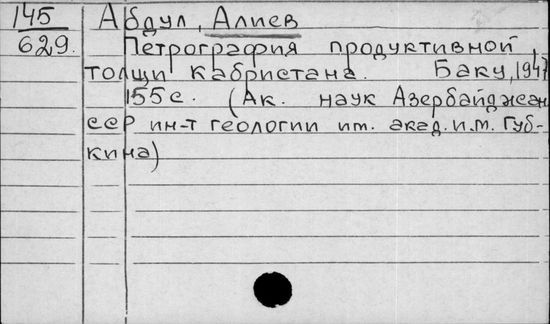 145
629.
Абдул, Алиев
Петрография продуктивной
толщи кабристана. Баку, 1947
155 с. (Ак. наук Азербайджан
ССР ин-т геологии им. акад. и.м. Губ-
кина)